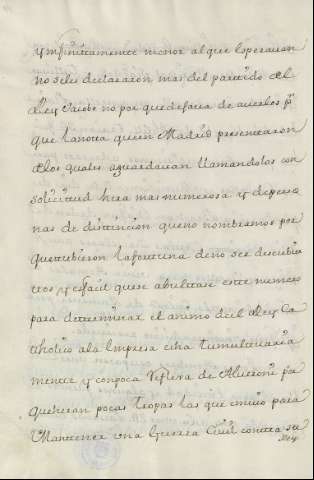 y infinitamente menor al que esperauan
no se les declararon mas del partido del
Rey Jacobo no por que dejaria de auerlos pr
que la notta que en Madrid presentaron
de los quales aguardauan llamandolos con
solicitud hera mas numerosa y de perso
nas de distincion que no nombramos por
que tubieron la fortuna de no ser descubier
ttos y es facil que se abultase este numero
para determinar el animo del Rey Ca
tholico a la Impresa echa tumultuaria
mente y con poca reflexa de Alueroni pa
que heran pocas tropas las que envio para
Mantener una Guerra Ciuil contra su
Rey